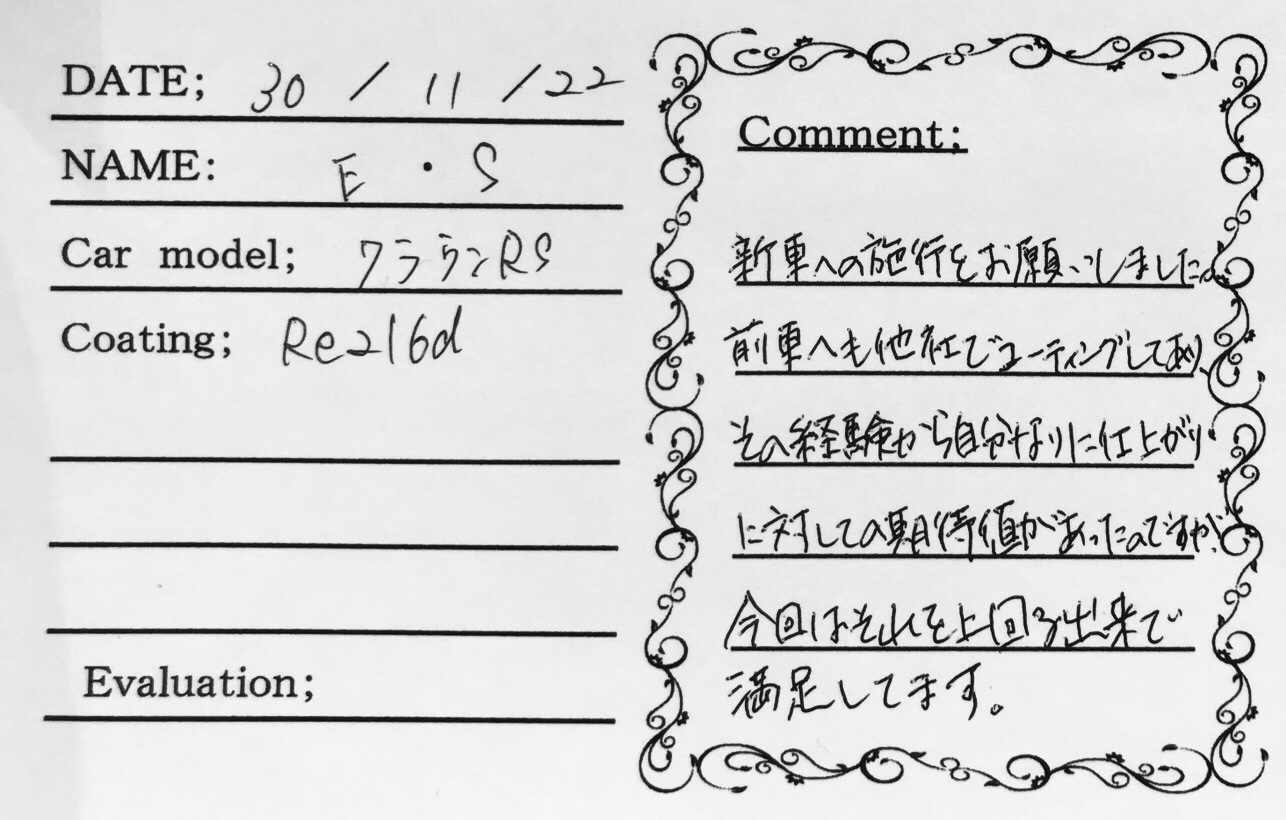 DATE; 30 / 11 / 22
NAME: E・S
Car model; クラウンRS
Coating; Re216d
Evaluation;
Comment;
新車への施行をお願いしました。
前車へも他社でコーティングしてあり、
その経験から自分なりに仕上がり
に対しての期待値があったのですが、
今回はそれを上回る出来で
満足してます。